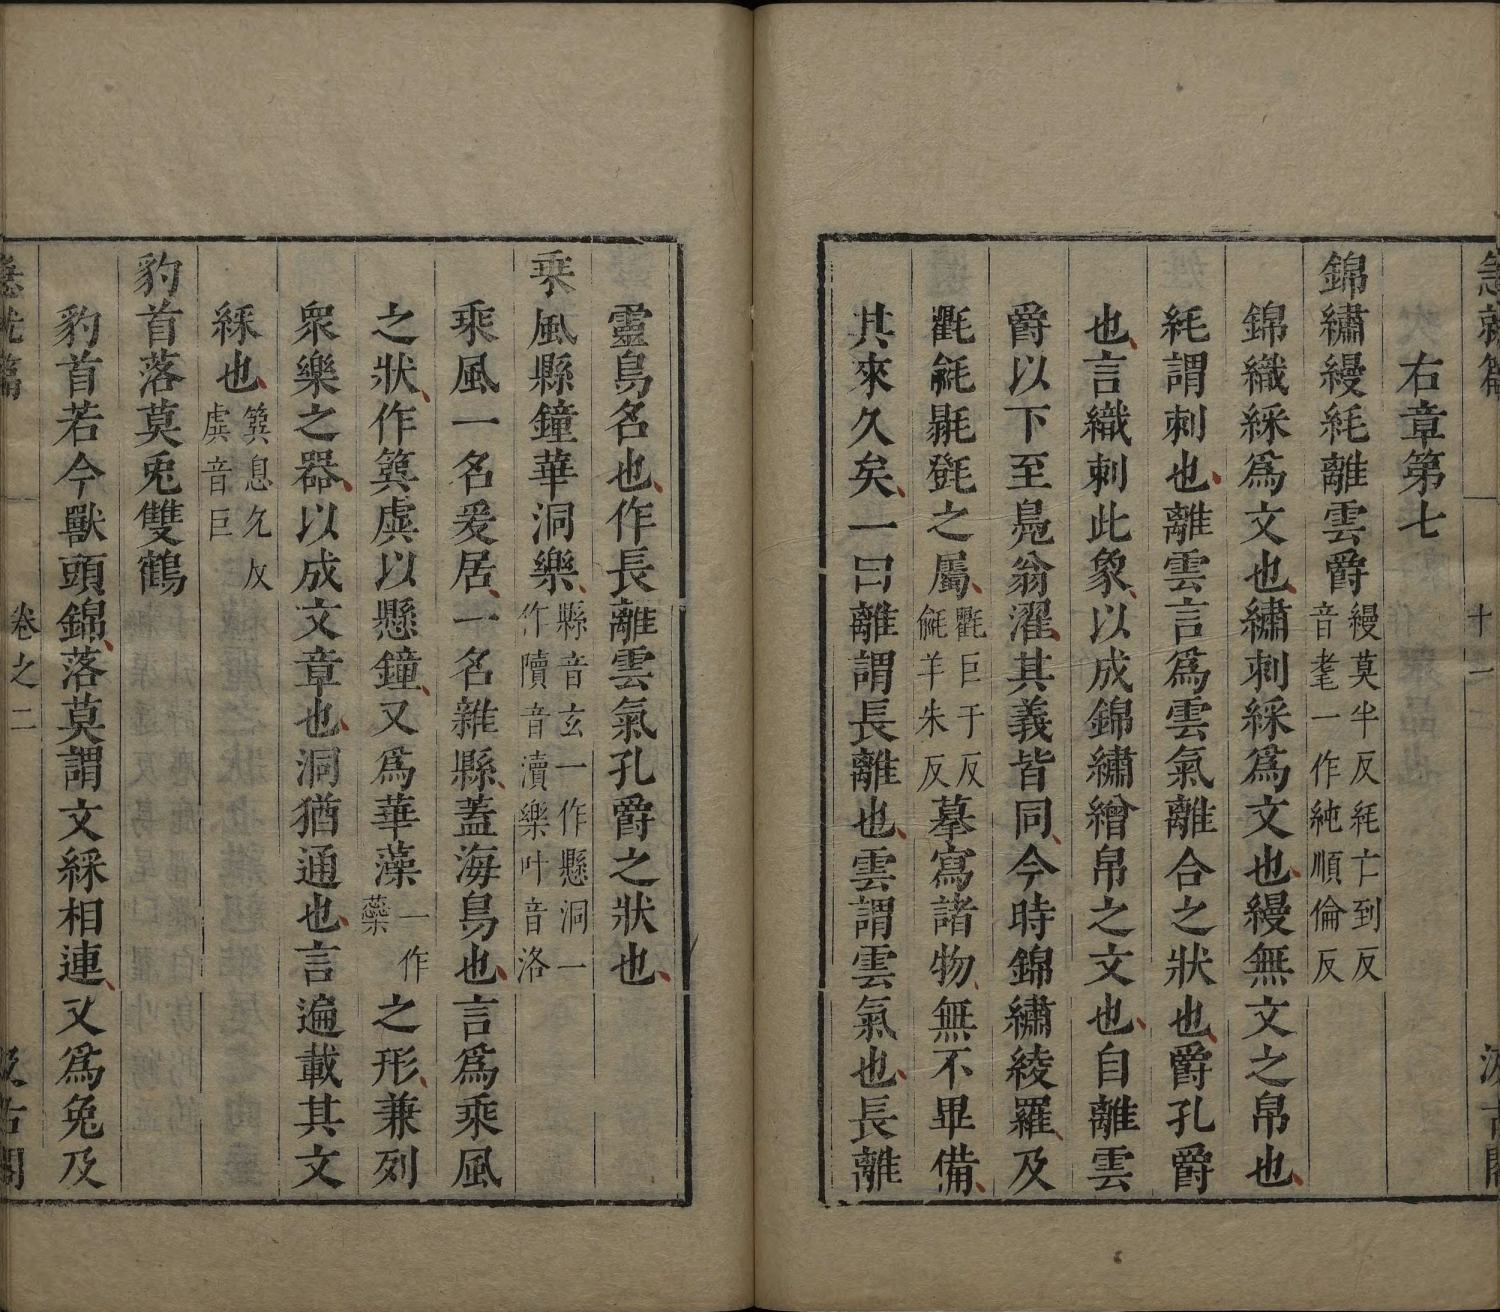 急就篇
十一
汲古閣
右章第七
錦繡縵𣬛離雲爵縵莫半反𣬛亡到反音耄一作純順倫反
錦織綵爲文也繡刺綵爲文也縵無文之帛也
𣬛謂刺也離雲言爲雲氣離合之狀也爵孔爵
也言織刺此象以成錦繡繒帛之文也自離雲
爵以下至鳧翁濯其義皆同今時錦繡綾羅及
氍毹㲪㲪之屬氍巨于反毹羊朱反摹寫諸物無不畢備
其來久矣一曰離謂長離也雲謂雲氣也長離
靈鳥名也作長離雲氣孔爵之狀也
乘風縣鐘華洞樂縣音玄一作懸洞一作隫音瀆樂叶音洛
乘風一名爰居一名雜縣蓋海鳥也言爲乘風
之狀作簨虡以懸鐘又爲華藻一作蘂之形兼列
衆樂之器以成文章也洞猶通也言遍載其文
綵也簨息允反虡音巨
豹首落莫兎雙鶴
豹首若今獸頭錦落莫謂文綵相連又爲兔及
急就篇
卷之二
汲古閣